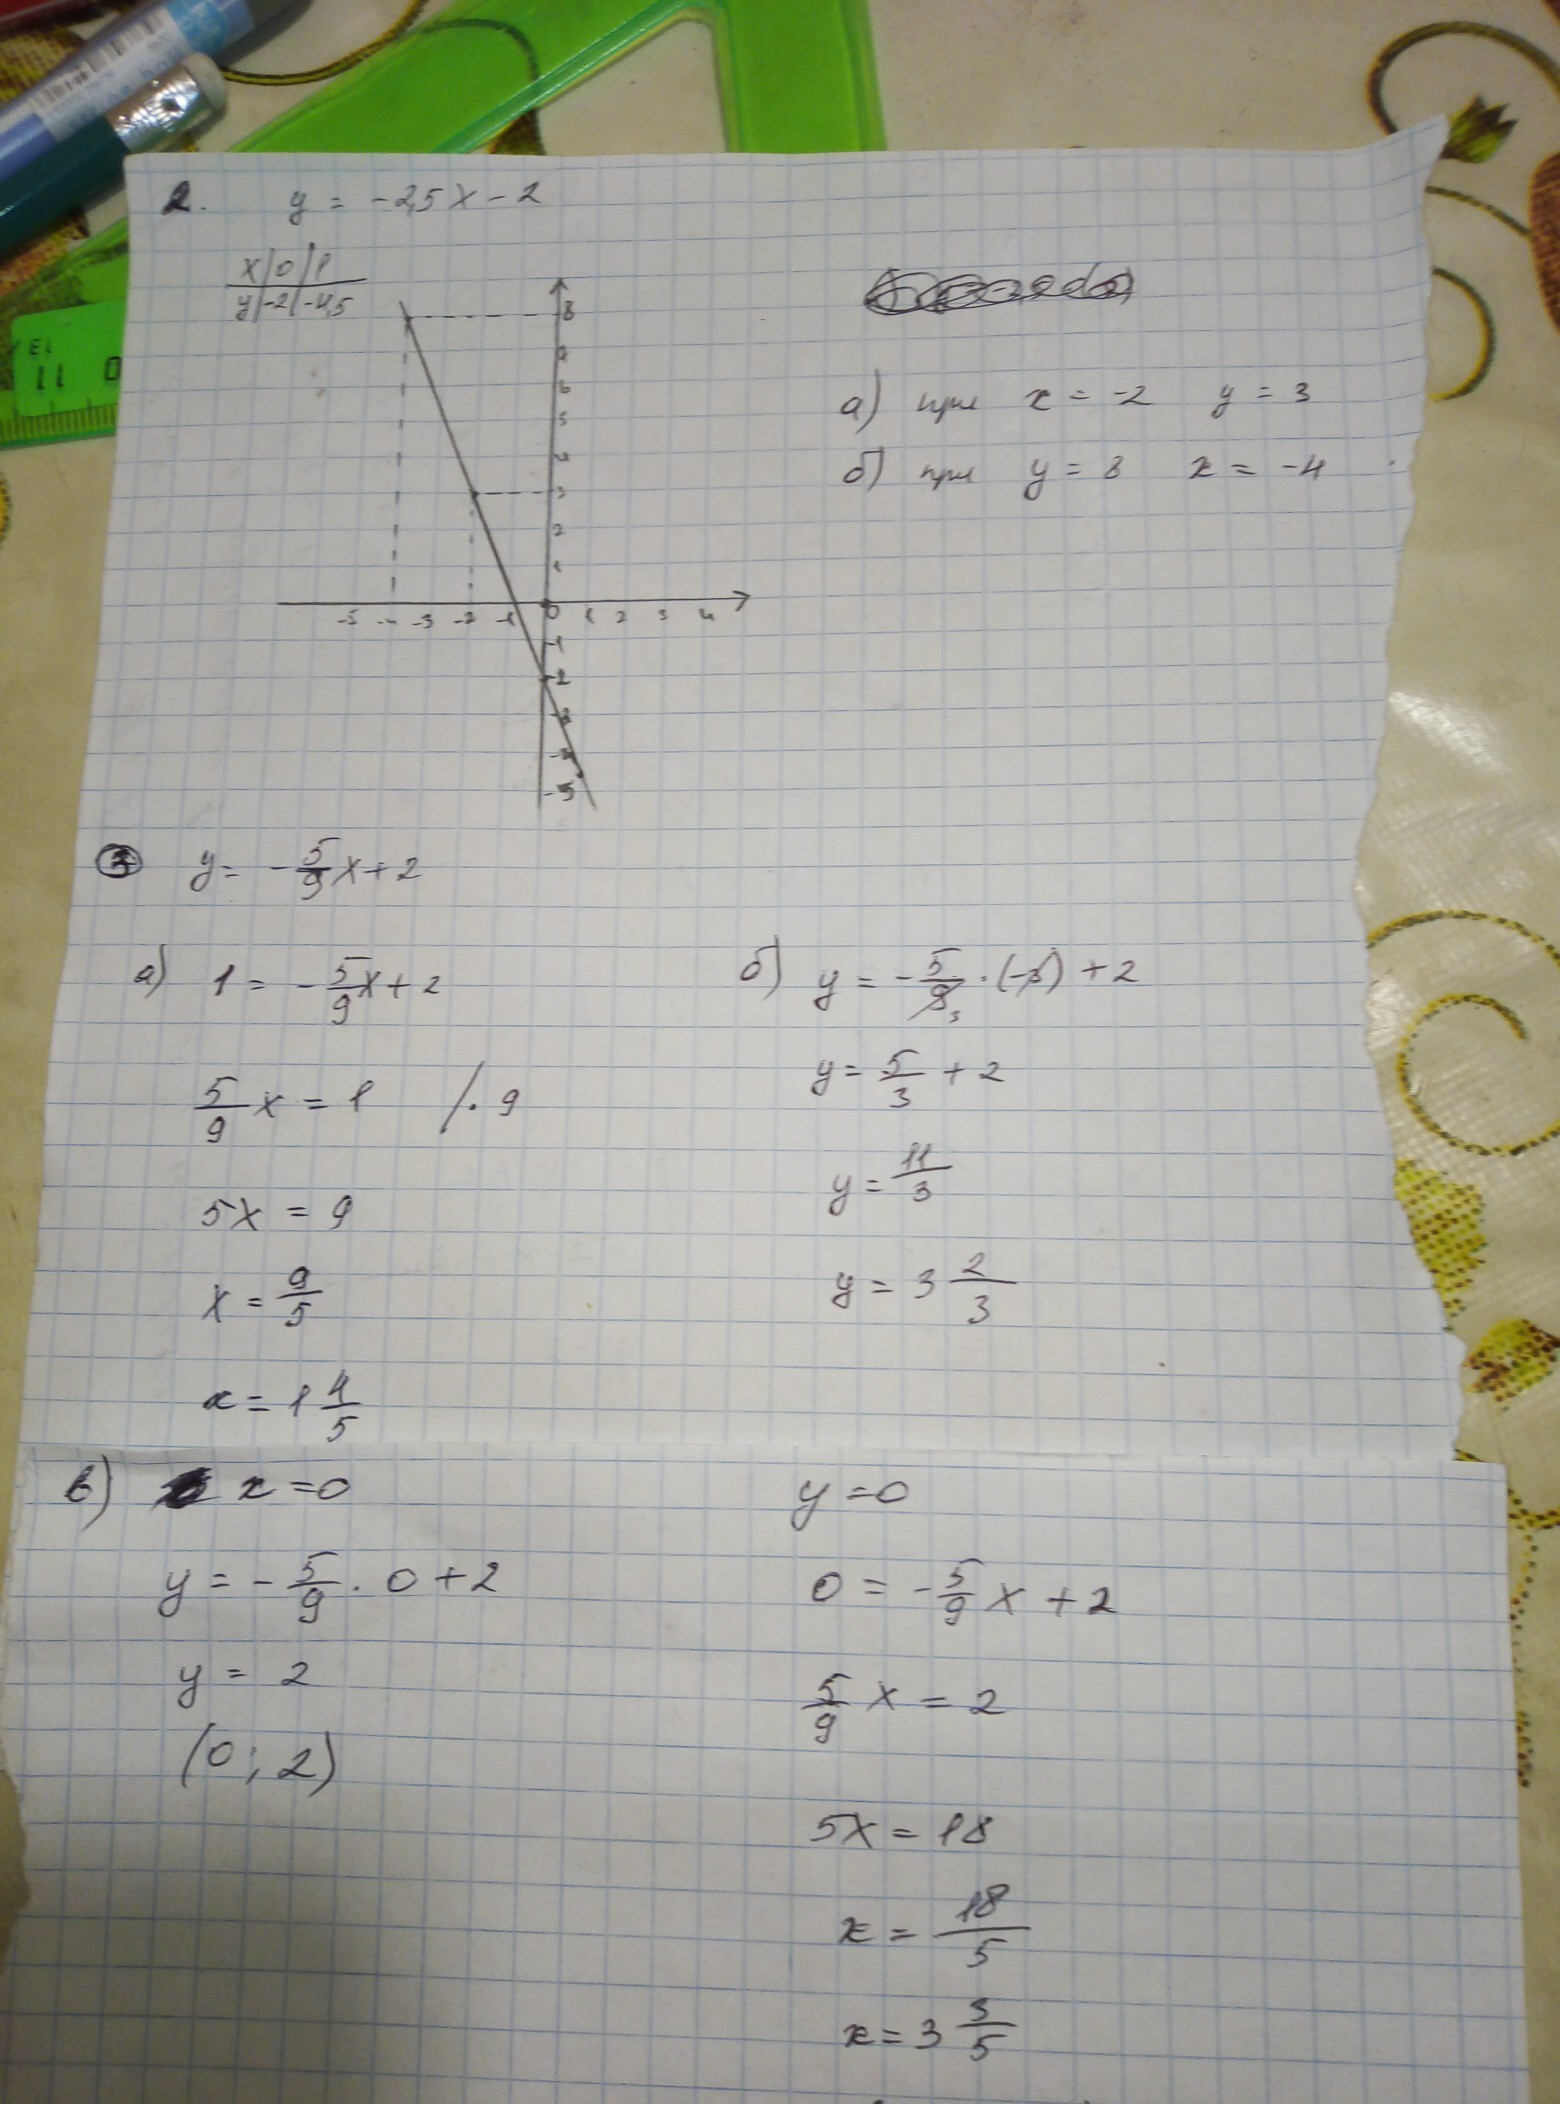 2. y = -2,5x - 2
x | 0 | 1
y | -2 | -4,5
8
7
6
5
4
3
2
1
-5 -4 -3 -2 -1 0 1 2 3 4
-1
-2
-3
-4
-5
а) при x = -2 y = 3
б) при y = 8 x = -4
3 y = -5/9 x + 2
а) 1 = -5/9 x + 2
5/9 x = 1 / · 9
5x = 9
x = 9/5
x = 1 4/5
б) y = -5/9 3 · (-3) + 2
y = 5/3 + 2
y = 11/3
y = 3 2/3
в) x = 0
y = -5/9 · 0 + 2
y = 2
(0; 2)
y = 0
0 = -5/9 x + 2
5/9 x = 2
5x = 18
x = 18/5
x = 3 3/5
11